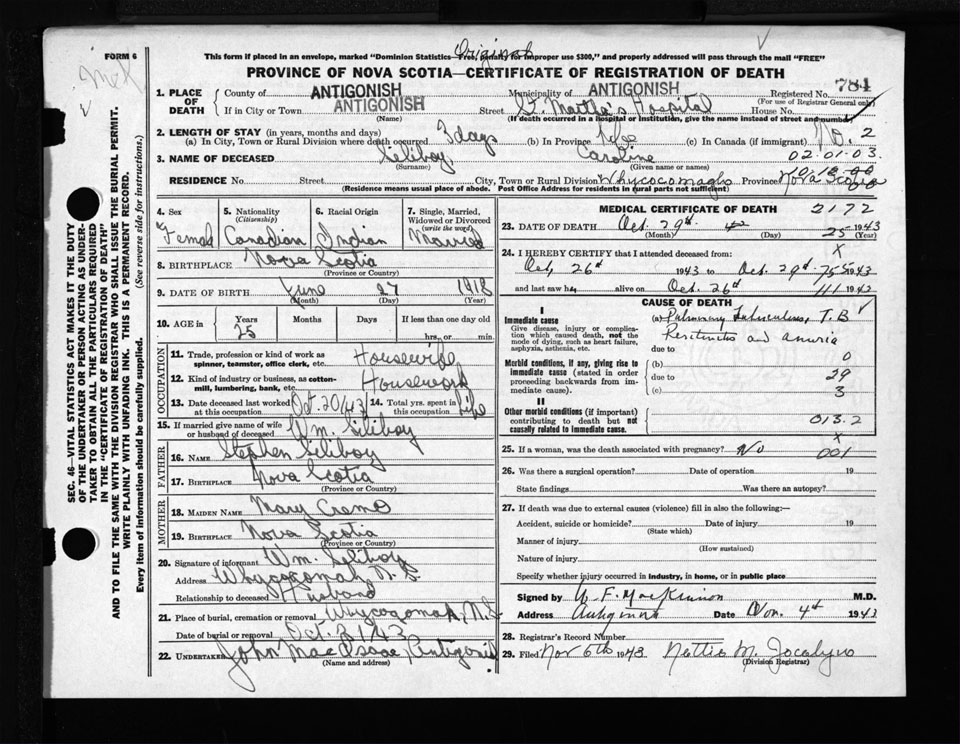 FORM 6
Original
This form if placed in an envelope, marked "Dominion Statistics—Free, penalty for improper use $300," and properly addressed will pass through the mail "FREE"
PROVINCE OF NOVA SCOTIA—CERTIFICATE OF REGISTRATION OF DEATH
1. PLACE OF DEATH County of ANTIGONISH Municipality of ANTIGONISH Registered No. 781
(For use of Registrar General only)
If in City or Town ANTIGONISH Street St. Martha's Hospital House No.
(Name) (If death occurred in a hospital or institution, give the name instead of street and number)
2. LENGTH OF STAY (in years, months and days)
(a) In City, Town or Rural Division where death occurred 3 days (b) In Province Life (c) In Canada (if immigrant) No. 2
02-01-03.
3. NAME OF DECEASED Siliboy, Caroline
(Surname) (Given name or names)
RESIDENCE No. Street City, Town or Rural Division Whycocomagh Province Nova Scotia
(Residence means usual place of abode. Post Office Address for residents in rural parts not sufficient)
SEC. 46—VITAL STATISTICS ACT MAKES IT THE DUTY
OF THE UNDERTAKER OR PERSON ACTING AS UNDER-
TAKER TO OBTAIN ALL THE PARTICULARS REQUIRED
IN THE "CERTIFICATE OF REGISTRATION OF DEATH"
AND TO FILE THE SAME WITH THE DIVISION REGISTRAR WHO SHALL ISSUE THE BURIAL PERMIT.
WRITE PLAINLY WITH UNFADING INK. THIS IS A PERMANENT RECORD.
Every item of information should be carefully supplied. (See reverse side for instructions.)
4. Sex Female
5. Nationality (Citizenship) Canadian
6. Racial Origin Indian
7. Single, Married, Widowed or Divorced (write the word) Married
8. BIRTHPLACE Nova Scotia
(Province or Country)
9. DATE OF BIRTH June 27 1918
(Month) (Day) (Year)
10. AGE in Years Months Days If less than one day old
25 hrs. or min.
OCCUPATION
11. Trade, profession or kind of work as spinner, teamster, office clerk, etc. Housewife
12. Kind of industry or business, as cotton-mill, lumbering, bank, etc. Housework
13. Date deceased last worked at this occupation Oct. 20/43 14. Total yrs. spent in this occupation Life
15. If married give name of wife or husband of deceased Wm. Siliboy
FATHER
16. NAME Stephen Siliboy
17. BIRTHPLACE Nova Scotia
(Province or Country)
MOTHER
18. MAIDEN NAME Mary
19. BIRTHPLACE Nova Scotia
(Province or Country)
20. Signature of informant Wm. Siliboy
Address Whycogomah N.S.
Relationship to deceased Husband
21. Place of burial, cremation or removal Whycogomah, N.S.
Date of burial or removal Oct. 31/43
22. UNDERTAKER John MacIsaac, Antigonish
(Name and address)
MEDICAL CERTIFICATE OF DEATH 2172
23. DATE OF DEATH Oct. 29th 25 1943
(Month) (Day) (Year)
24. I HEREBY CERTIFY that I attended deceased from: X
Oct. 26th 1943 to Oct. 29th 1943
and last saw her alive on Oct. 26th 1943
CAUSE OF DEATH
I
Immediate cause
Give disease, injury or complication which caused death, not the mode of dying, such as heart failure, asphyxia, asthenia, etc.
(a) Pulmonary tuberculosis, T.B
and anuria
due to
Morbid conditions, if any, giving rise to immediate cause (stated in order proceeding backwards from immediate cause).
(b) 0
due to 29
(c) 3
II
Other morbid conditions (if important) contributing to death but not causally related to immediate cause.
013.2
X
25. If a woman, was the death associated with pregnancy? No 001
26. Was there a surgical operation? Date of operation 19
State findings Was there an autopsy?
27. If death was due to external causes (violence) fill in also the following:—
Accident, suicide or homicide? Date of injury 19
(State which)
Manner of injury
(How sustained)
Nature of injury
Specify whether injury occurred in industry, in home, or in public place
Signed by W. F. MacKinnon M.D.
Address Antigonish Date Nov. 4th 1943
28. Registrar's Record Number
29. Filed Nov 6th 1943 Nettie M.
(Division Registrar)